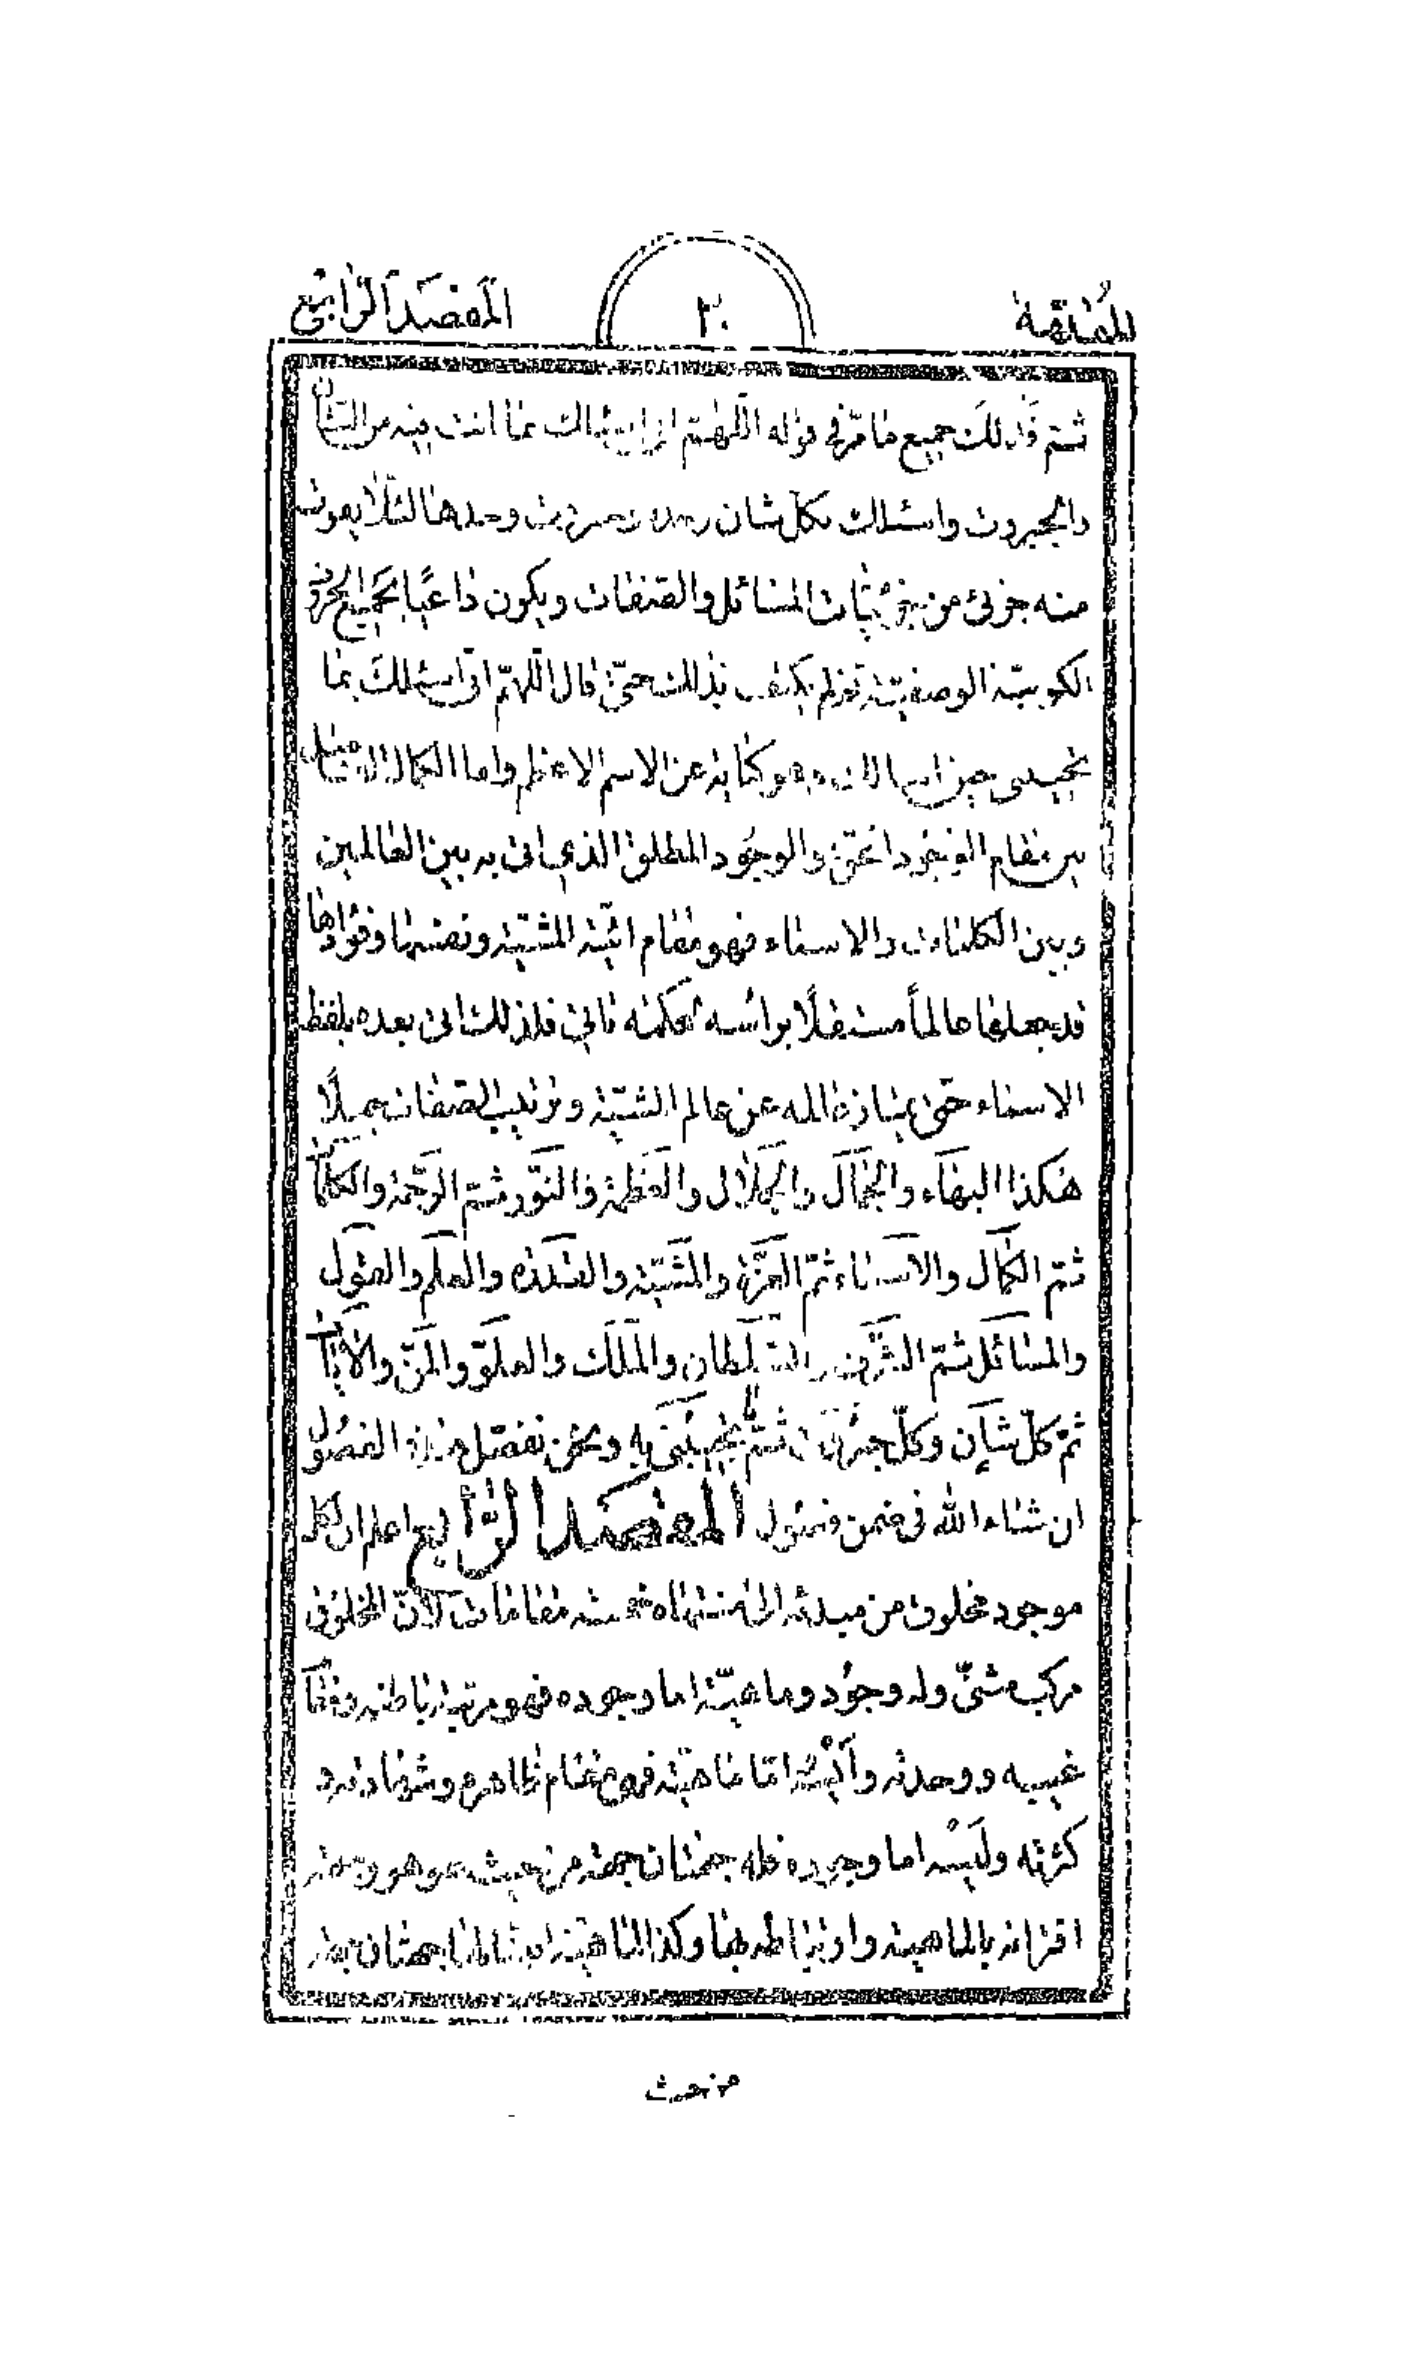 المقدمة ٢٠ المقصد الرابع
ثم فذلك جميع ما مر فى قوله اللهم انى اسئلك بما انت فيه من الشان
والجبروت واسئلك بكل شان وحده وجبروت وحدها لئلا يفوت
منه جزئ من جزئيات المسائل والصفات ويكون داعيًا بجميع الحروف
الكونية الوصفية ثم لم يكتف بذلك حتى قال اللهم انى اسئلك بما
تجيبنى حين اسالك وهو كناية عن الاسم الاعظم واما الكمال
بين مقام الوجود الحق والوجود المطلق الذى اتى به بين العالمين
وبين الكلمات والاسماء فهو مقام انية المشية ونفسها وفؤادها
قد جعلها عالماً مستقلًا براسه لحكمة تاتى فلذلك اتى بعده بلفظ
الاسماء حتى يمتاز عالمه عن عالم المشية وترتيب الصفات جميلًا
هكذا البهاء والجمال والجلال والعظمة والنور ثم الرحمة والكلمات
ثم الكمال والاسماء ثم العزة والمشية والقدرة والعلم والقول
والمسائل ثم الشرف والسلطان والملك والعلو والمن والايات
ثم كل شان وكل جبروت ثم تجيبنى به ونحن نفصل هذه الفصول
ان شاء الله فى ضمن فصول المقصد الرابع اعلم ان لكل
موجود مخلوق من مبدئه الى منتهاه خمسة مقامات لان المخلوق
مركب مثنى وله وجود وماهية اما وجوده فهو مرتبة باطنه ومقام
غيبه ووحدته واما ماهيته فهى مقام ظاهره وشهادته و
كثرته وليسه اما وجوده فله جهتان جهة من حيث هو هو وجهة
اقترانه بالماهية وارتباطه بها وكذا الماهية ايضا لها جهتان جهة
من حيث